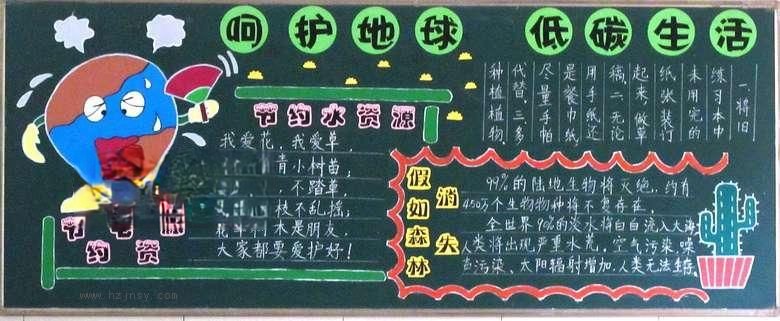 呵护地球 低碳生活
一、将旧
练习本中
未用完的
纸张装订
起来,做草
稿二、无论
用手纸还
是餐巾纸,
尽量手帕
代替。三、多
种植植物.
节约水资源
我爱花,我爱草,
青小树苗,
不踏草,
枝不乱摇;
木是朋友,
大家都要爱护好!
节约资
假如森林消失
99%的陆地生物将灭绝,约有
450万个生物物种将不复存在,
全世界90%的淡水将白白流入大海
人类将出现严重水荒,空气污染噪
音污染、太阳辐射增加.人类无法生存.
www.hzjnsy.com